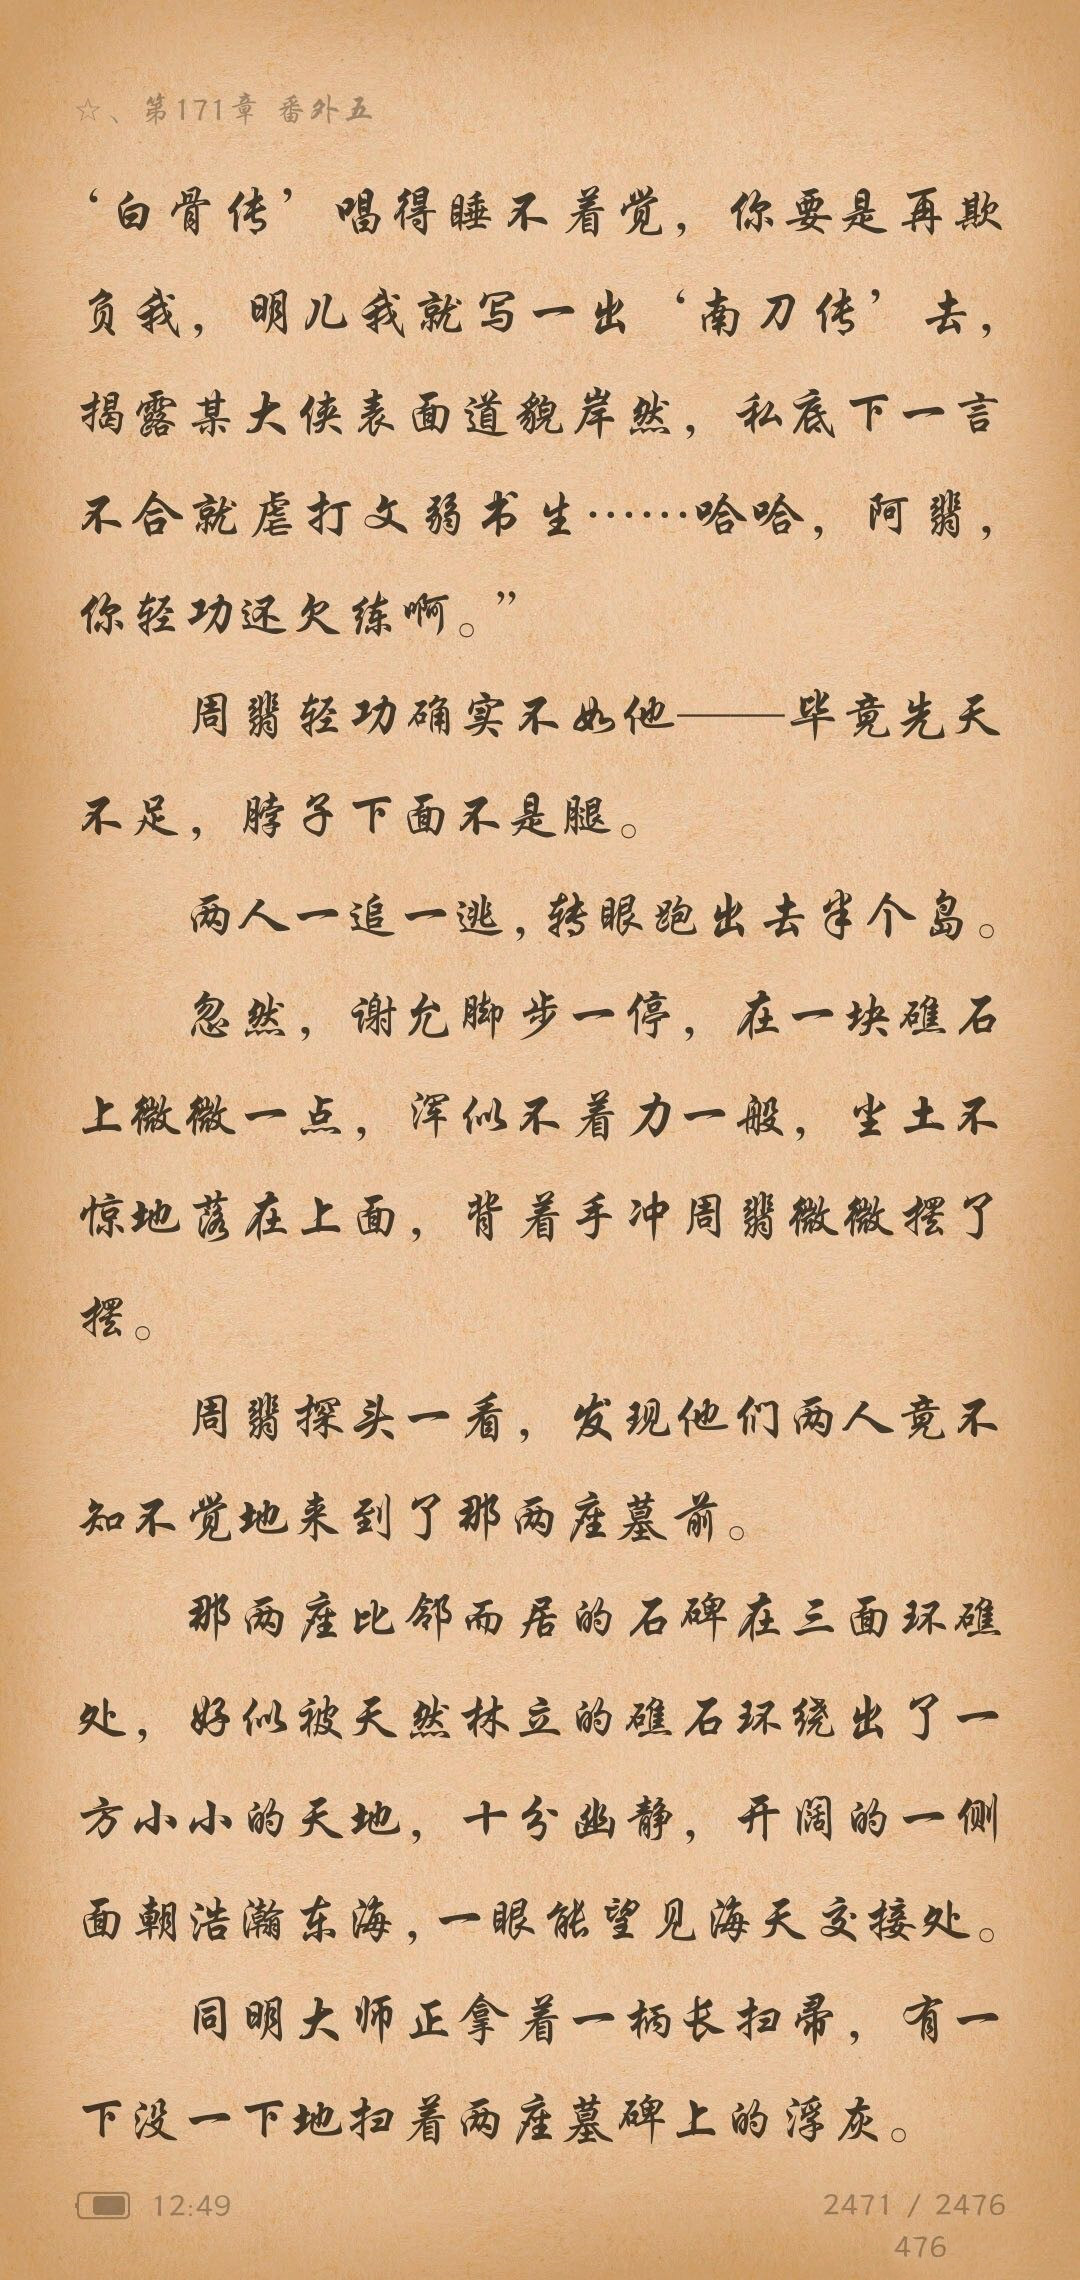 ☆、第171章 番外五
‘白骨传’唱得睡不着觉，你要是再欺
负我，明儿我就写一出‘南刀传’去，
揭露某大侠表面道貌岸然，私底下一言
不合就虐打文弱书生……哈哈，阿翡，
你轻功还欠练啊。”
周翡轻功确实不如他——毕竟先天
不足，脖子下面不是腿。
两人一追一逃，转眼跑出去半个岛。
忽然，谢允脚步一停，在一块礁石
上微微一点，浑似不着力一般，尘土不
惊地落在上面，背着手冲周翡微微摆了
摆。
周翡探头一看，发现他们两人竟不
知不觉地来到了那两座墓前。
那两座比邻而居的石碑在三面环礁
处，好似被天然林立的礁石环绕出了一
方小小的天地，十分幽静，开阔的一侧
面朝浩瀚东海，一眼能望见海天交接处。
同明大师正拿着一柄长扫帚，有一
下没一下地扫着两座墓碑上的浮灰。
12:49
2471 / 2476
476